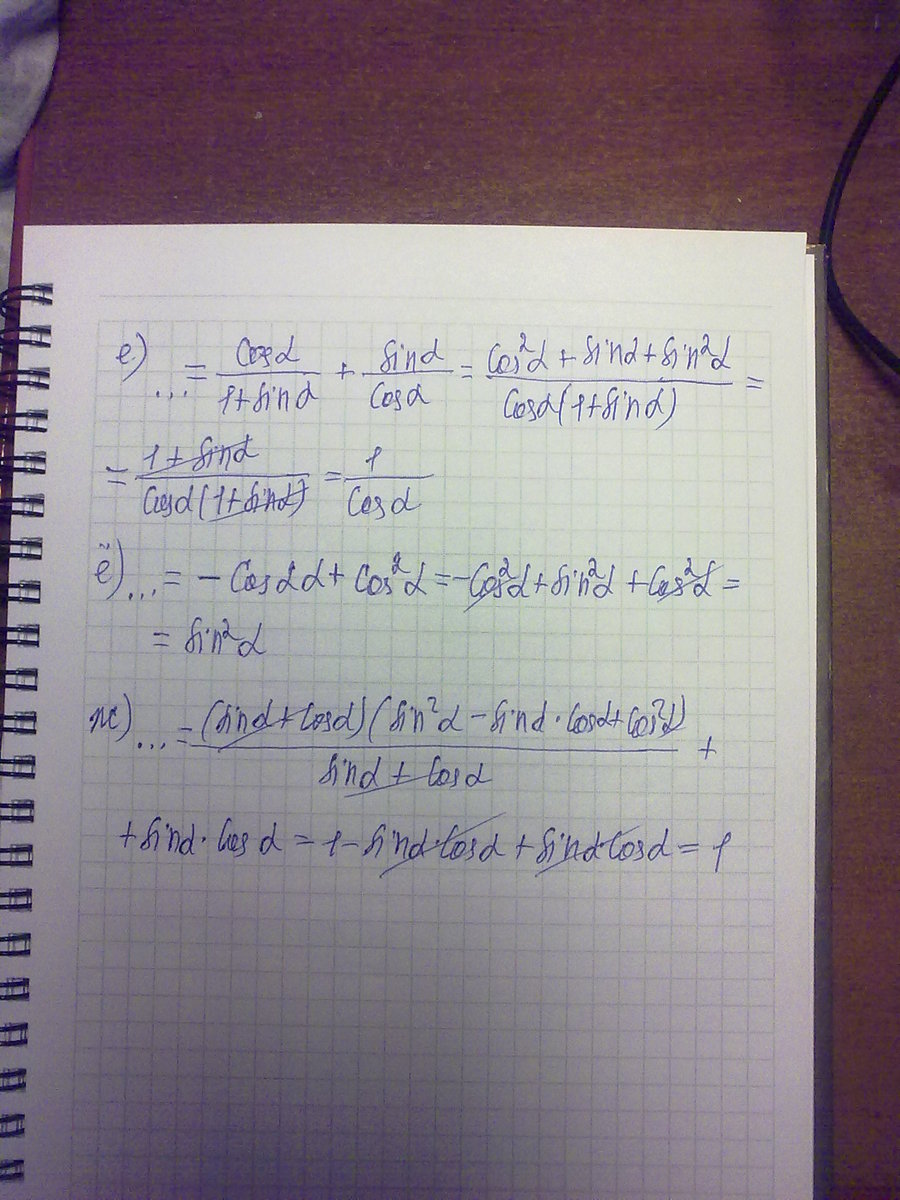 е) ... = cosα/(1+sinα) + sinα/cosα = (cos²α + sinα + sin²α)/(cosα(1+sinα)) =
= (1+sinα)/(cosα(1+sinα)) = 1/cosα
ё) ... = - cos2α + cos²α = -cos²α + sin²α + cos²α =
= sin²α
ж) ... = (sinα + cosα)(sin²α - sinα·cosα + cos²α)/(sinα + cosα) +
+ sinα·cosα = 1 - sinα·cosα + sinα·cosα = 1